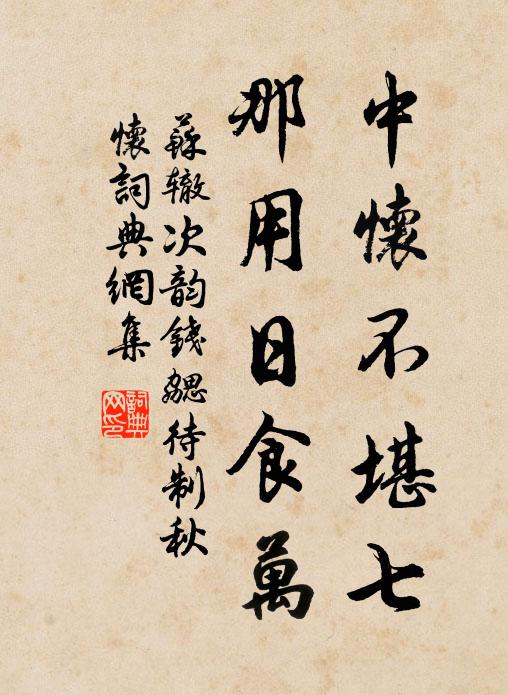 中懷不堪七
那用日食萬
蘇轍次韵錢勰待制秋
懷詞典網集
詞典網印